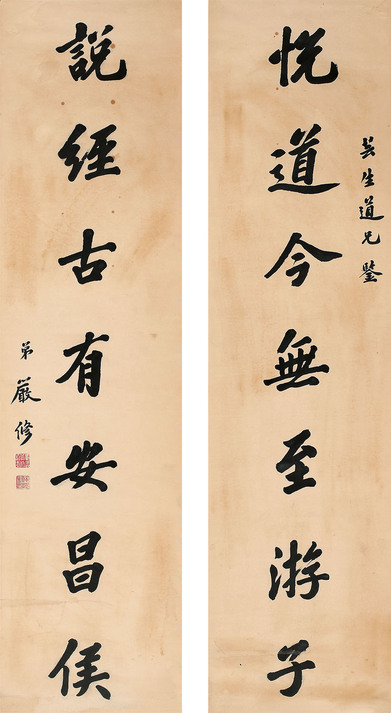 芸生道兄鑒
悦道今無至游子
說經古有安昌侯
弟嚴修